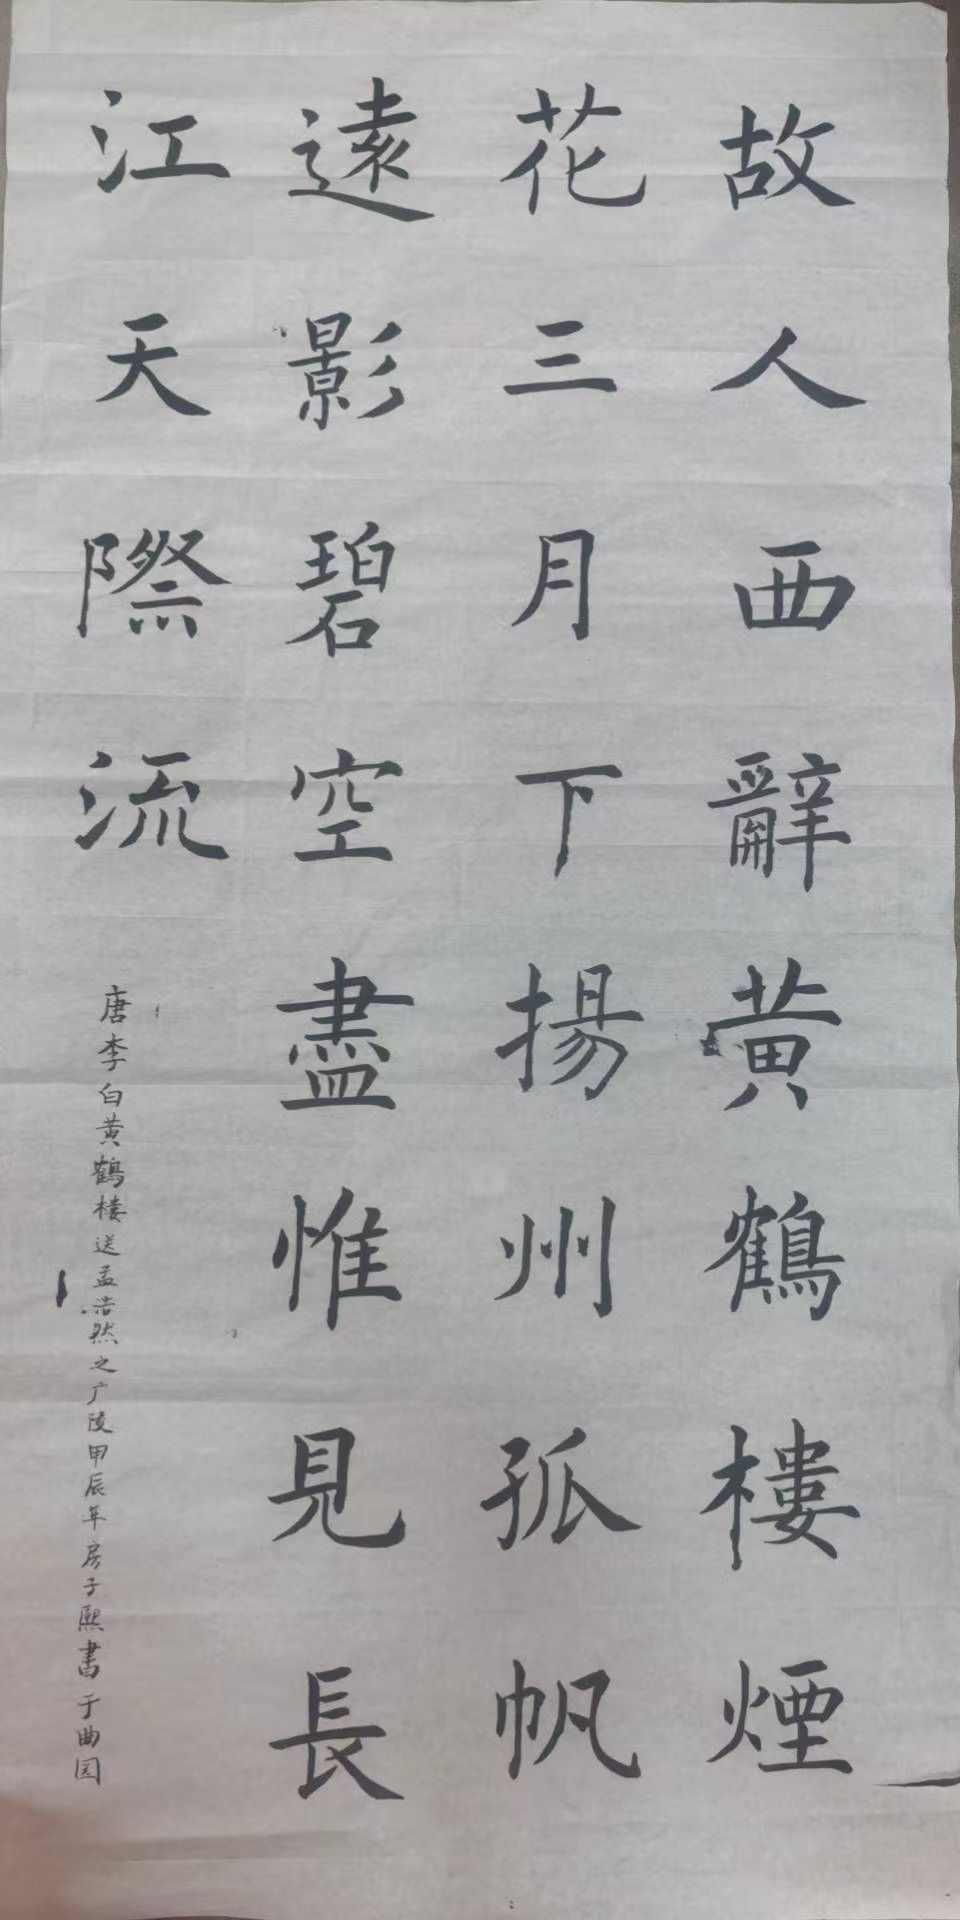 故人西辭黄鶴樓煙
花三月下揚州孤帆
遠影碧空盡惟見長
江天際流
唐李白黄鶴楼送孟浩然之广陵甲辰年房子熙書于曲园